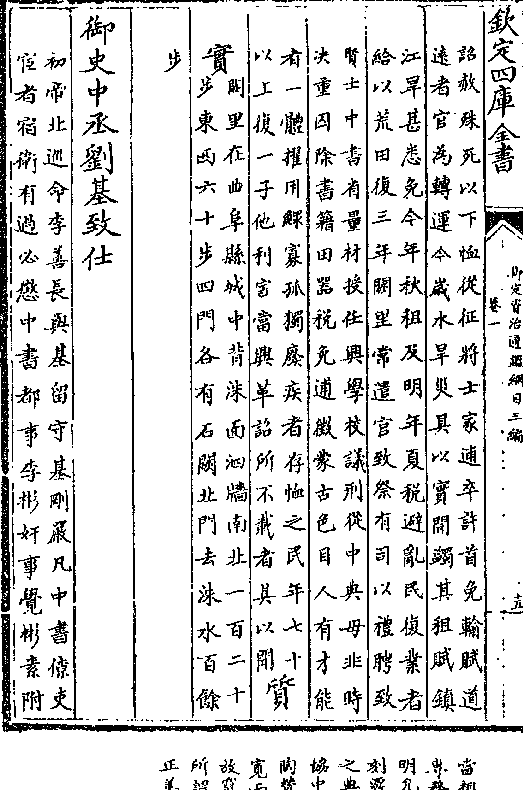 欽定四庫全書
御定資治通鑑綱目三編
卷一
十五
詔赦殊死以下恤從征將士家逋卒許首免輸賦道
遠者官為轉運今歲水旱災具以實聞蠲其租賦鎮
江旱甚悉免今年秋租及明年夏稅避亂民復業者
給以荒田復三年闕里常遣官致祭有司以禮聘致
賢士中書省量材授任興學校議刑從中典毋非時
決重囚除書籍田器稅免逋徵蒙古色目人有才能
者一體擢用鰥寡孤獨廢疾者存恤之民年七十
以上復一子他利害當興革詔所不載者具以聞質
實闕里在曲阜縣城中背洙面泗牆南北一百二十
步東西六十步四門各有石閫北門去洙水百餘
步
御史中丞劉基致仕
初帝北巡命李善長與基留守基剛嚴凡中書僚吏
宦者宿衛有過必懲中書都事李彬奸事覺彬素附
之典
協中